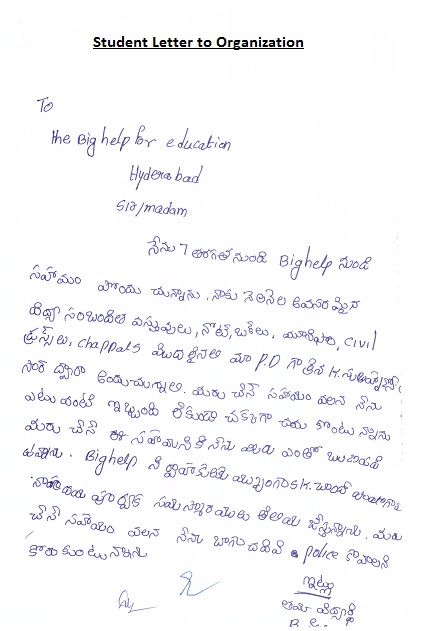 Student Letter to Organization
To
the Big help for education
Hyderabad
Sir/madam
నేను 7 తరగతి నుండి Bighelp నుండి
సహాయం పొందు చున్నాను. నాకు నెలనెల అవసరమైన
విద్యా సంబంధిత వస్తువులు, నోట్ బుక్‌లు, యూనిఫాం, Civil
డ్రస్స్‌లు, chappals మొదలైనవి మా P.D గారైన K.
సార్ ద్వారా అందుచున్నాయి. మీరు చేసే సహాయం వలన నేను
ఎటువంటి ఇబ్బంది లేకుండా చక్కగా చదువు కొంటు న్నాను
మీరు చేసే ఈ సహాయానికి నేను మీకు ఎంతో ఋణపడి
ఉన్నాను. Bighelp ని
నా హృదయ పూర్వక నమస్కారములు తెలియ జేస్తున్నాను. మీరు
చేసే సహాయం వలన నేను బాగు చదివి police కావాలని
కోరుకుంటున్నాను
ఇట్లు
తమ విద్యార్థి